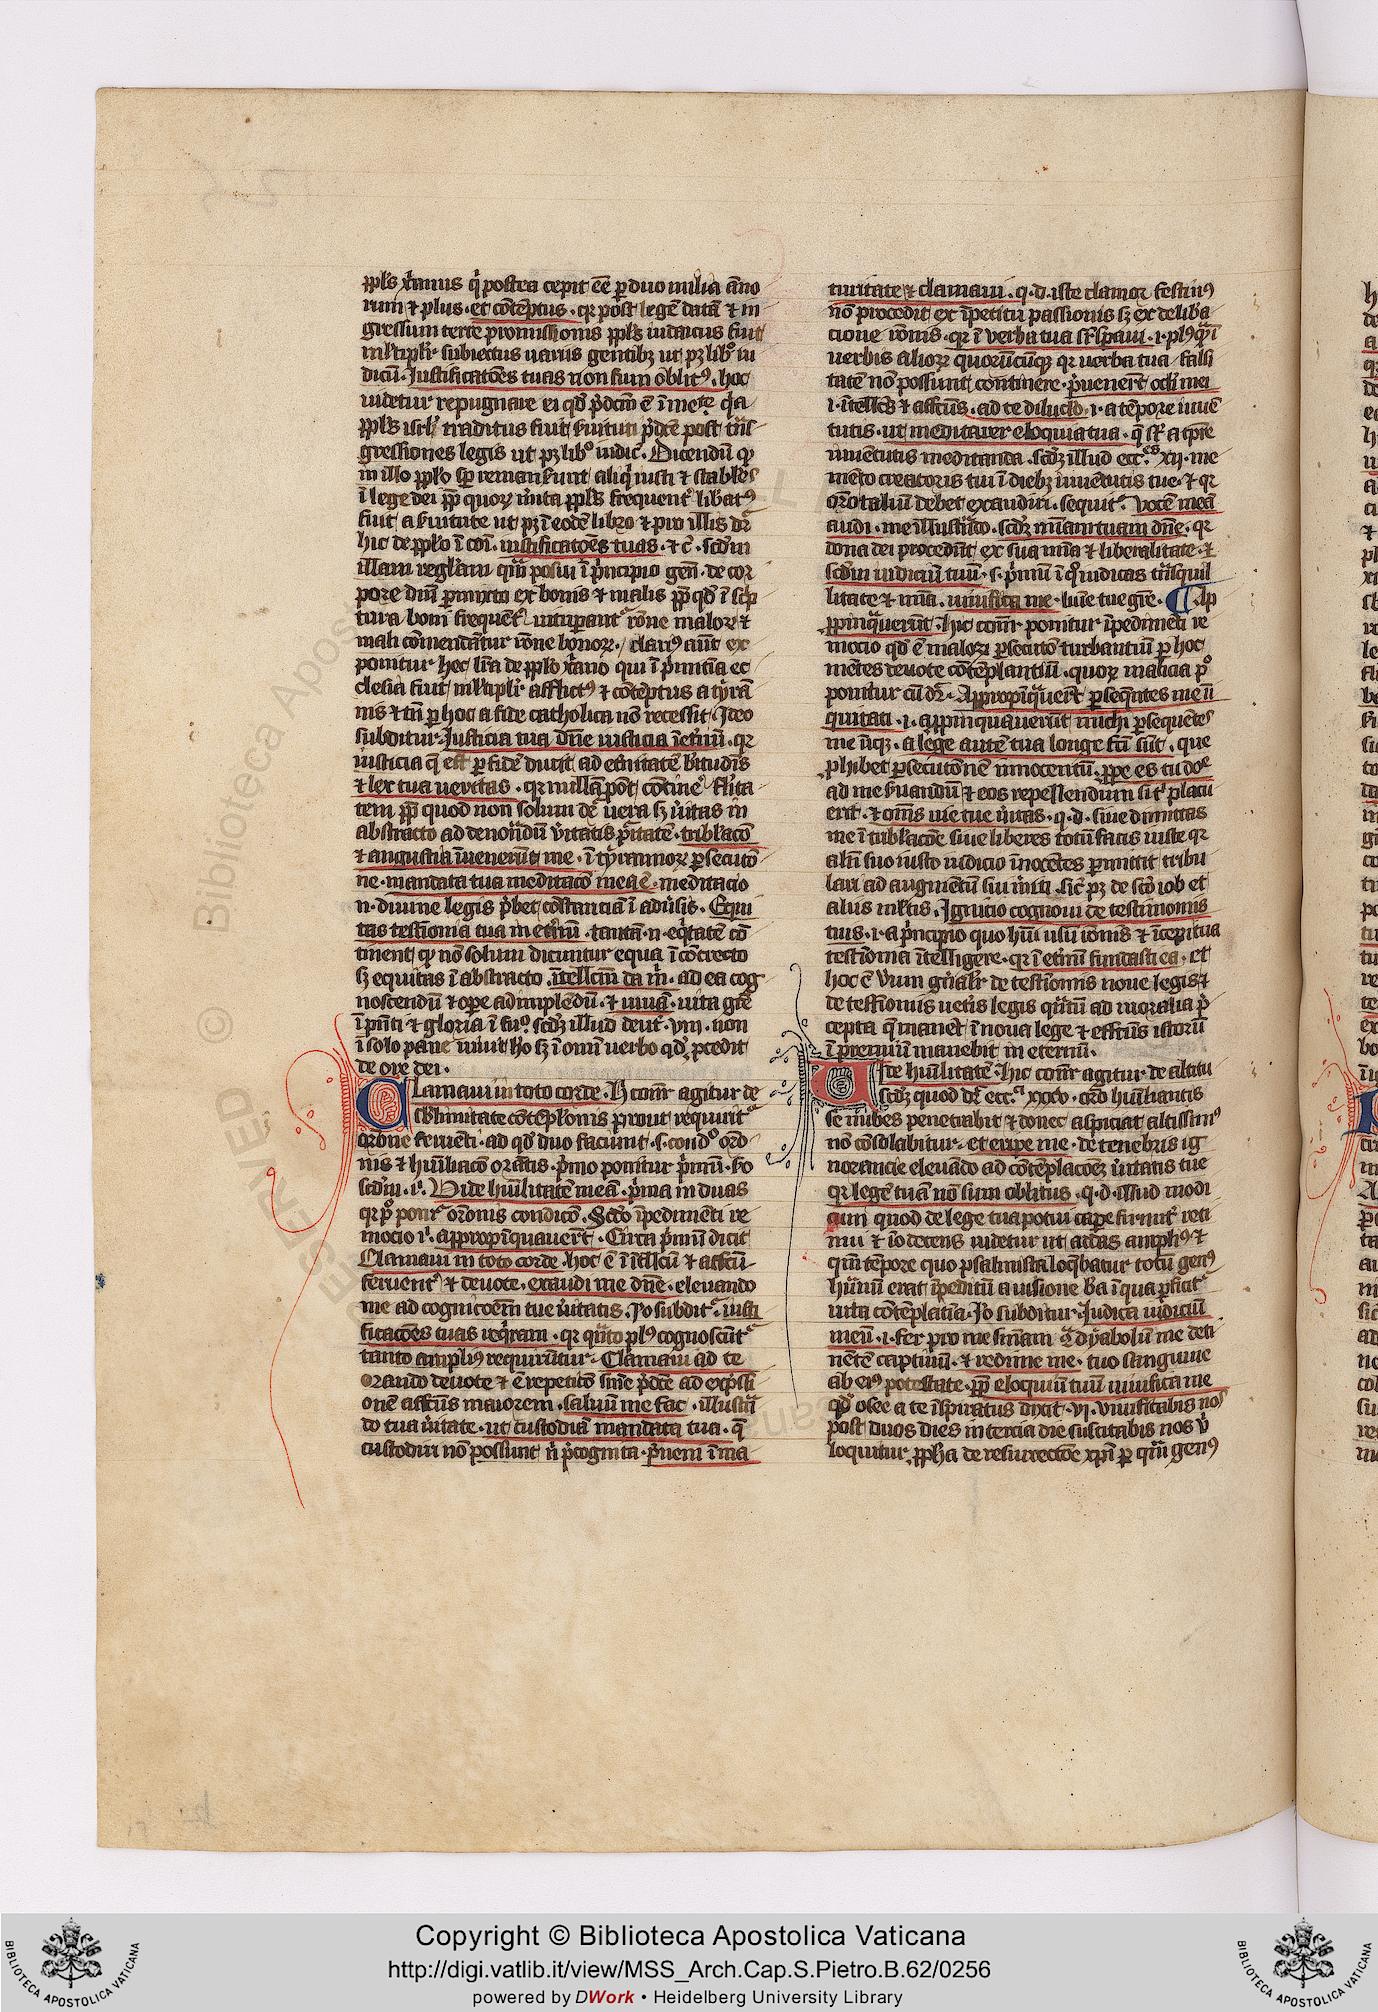 ppls xianus q postea cepit eē p duo milia anno
rum & plus · et cōteptus · qr post legē datā & in
gressum terre promissionis ppls iudaicus fuit
subiectus uariis gentibz ut pz libº iu
dicū · Iustificatōes tuas non sum oblitꝰ · hoc
uidetur repugnare ei qd p̄dcm ē
ppls isrl traditus fuit post
gressiones legis ut pz libº iudic · Dicendū qꝫ
in illo pplo sp remanserunt aliq iusti & stabiles
ī lege dei quoꝝ ppls frequent libatꝰ
fuit a ut pz ī eodē libro & pro illis dr
hic de pplo ī cōi · iustificatōes tuas · & c · scdm
illam reglam quā posui ī principio gen · de cor
pore dni pmixto ex bonis & malis qd ī scp
tura boni frequent uitupant rōne maloꝝ &
mali cōmendātur rōne bonoꝝ · clariꝰ aūt ex
ponitur hec lra de pplo xiano qui ī
clesia fuit afflictꝰ & cōteptus a tyrā
nis & tn p hoc a fide catholica nō recessit · Ideo
subditur · Iusticia tua dne iusticia ī etnū · qr
iusticia q est p fidē ducit ad etnitatē bitudīs
& lex tua ueritas · qr nullā pōt cōtine flita
tem quod non solum dr uera sz uitas in
abstracto ad denotādū uitatis · triblacō
& angustia īuenerūt me · ī tyrannoꝝ psecutō
ne · mandata tua meditacō mea ē · meditacio
n · diuine legis p̄bet cōstanciā ī adusis · Equi
tas testīonia tua in etnū · tantā · n · eqtatē cō
tinent qꝫ nō solum dicuntur equa ī cōcreto
sz equitas ī abstracto · ītellcm da m · ad ea cog
noscendū & ope adimplēdū · & uiuā · uita gre
ī pnti & gloria ī fuº · scdz illud deut · viii · non
ī solo pane uiuit ho sz ī omi uerbo qd pcedit
de ore dei ·
Clamaui in toto corde · H cōmr agitur de
sblimitate cōteplonis prout requirit
orōne feruēti · ad qd duo faciunt · s · condº orō
nis & humliacō orātis · pmo ponitur pmū · so
scdm · iº · Vide humilitatē meā · pma in duas
qr pº ponit orōnis condicō · Scdo īpedimēti re
mocio iº · appropīquauerūt · Circa pmū dicit
Clamaui in toto corde · hoc ē ī & affcū
feruent & deuote · exaudi me dne · eleuando
me ad cognicōem tue uitatis · Io subdit · iusti
ficacōes tuas reqram · qr plꝰ cognoscūt
tanto ampliꝰ requirūtur · Clamaui ad te
orando deuote & ē repetitō snie p̄dce ad expssi
onē affctus maiorem · saluū me fac · illustrā
do tua uitate · ut custodiā mandata tua · q
custodiri nō possunt p̄cognita · Pueni ī ma
turitate & clamaui · q · d · iste clamor festinꝰ
nō procedit ex īpetu passionis sz ex deliba
cione · qr ī verba tua spspaui · i · plꝰqā ī
uerbis alioꝝ quorūcūqꝫ qr uerba tua falsi
tatē nō possunt continere · p̄uenerūt oclī mei
i · & affctus · ad te diluclo · i · a tempore iuuē
tutis · ut meditarer eloquia tua · q st a tpre
iuuentutis meditanda · scdz illud ecc · xii · me
mēto creatoris tui ī diebz iuuētutis tue · & qr
oro talium debet exaudiri · sequit · Vocē meā
audi · me illustrādo · scdz mīam tuam dne · qr
dona dei procedūt ex sua mīa & liberalitate · &
scdm iudiciū tuū · s · pmū ī quo iudicas trāsquil
litate & mīa · uiuifica me · tue gre · Ap
ppinquerūt · Hic cōmr ponitur īpedimēti re
mocio qd ē maloꝝ psecutō turbantiū p hoc
mētes deuote cōteplantiū · quoꝝ malicia pº
ponitur cū dr · Appropīquerūt psequētes me ī
quitati · i · apppinquauerūt michi psequētes
me · a lege autē tua longe fcī sūt · que
phibet psecutonē innocentū · ppe es tu dne
ad me & eos repellendum placu
erit · & oms uie tue uitas · q · d · siue dimittas
me ī siue liberes totū facis iuste qr
suo iusto iudicio īnocētes pmittit tribu
lari ad augmentū sui miti · sic pz de scō iob et
aliis mltis · Initio cognoui de testimoniis
tuis · i · a principio quo hui usū rōnis & īcepi tua
testīonia ītelligere · qr ī etnū fundasti ea · et
hoc ē uerum de testīoniis noue legis &
de testīoniis uetis legis ad moralia p̄
cepta q manet ī noua lege & effctus istorū
ī premiū manebit in eternū ·
Vide humilitatē · Hic cōmr agitur de altitu
scdz quod dr ecc · xxxv · oro humiliantis
se nubes penetrabit & donec aspiciat altissimꝰ
nō cōsolabitur · et eripe me · de tenebris ig
norancie eleuādo ad cōteplacōez uitatis tue
qr legē tuā nō sum oblitus · q · d · illud modi
cum quod de lege tua potui cape firmit reti
nui & io decens uidetur ut addas ampliꝰ · &
tempore quo psalmista loqbatur totū genꝰ
humanū erat īpeditū a uisione dia ī qua pficit
uita cōteplatia · Io subditur · Iudica iudiciū
meū · i · fer pro me sniam dyabolum me deti
nētē captiuū · & redime me · tuo sanguine
ab eiꝰ potestate · eloquiū tuū uiuifica me
qd osee a te īspiratus dixit · vi · Viuificabis nos
post duos dies in tercia die suscitabis nos
loquitur ppha de resurrectōe xpi p genꝰ
Copyright © Biblioteca Apostolica Vaticana
http://digi.vatlib.it/view/MSS_Arch.Cap.S.Pietro.B.62/0256
powered by DWork • Heidelberg University Library
BIBLIOTECA APOSTOLICA VATICANA
BIBLIOTECA APOSTOLICA VATICANA